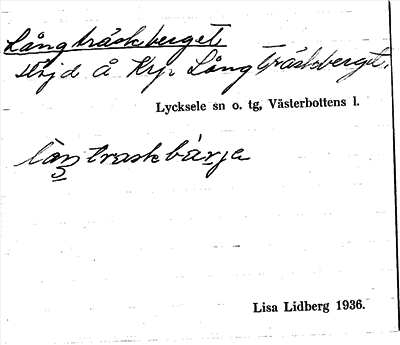 Långträskberget
Höjd å Krp. Långträskberget.
Lycksele sn o. tg, Västerbottens l.
låŋtraskbärje
Lisa Lidberg 1936.